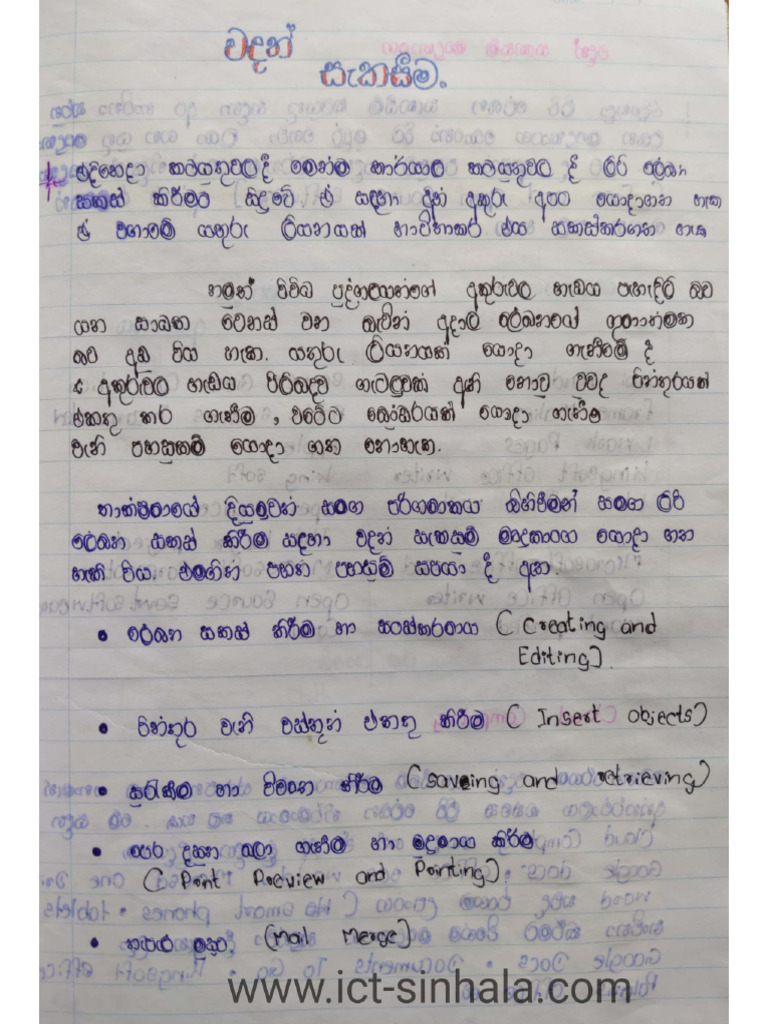 වදන්
සැකසීම.
එදිනෙදා කටයුතුවලදී මෙන්ම කාර්යාල කටයුතුවල දී ලිපි ලේඛන
සකස් කිරීමට සිදුවේ ඒ සඳහා අත් අකුරු අපට යොදාගත හැක
ඒ වගේම යතුරු ලියනයක් භාවිතාකර එය සකස්කරගත හැක
නමුත් විවිධ පුද්ගලයන්ගේ අකුරුවල හැඩය පැහැදිලි බව
යන සාධක වෙනස් වන බැවින් අදාල ලේඛනයේ ගුණාත්මක
බව අඩු විය හැක. යතුරු ලියනයක් යොදා ගැනීමේ දී
අකුරුවල හැඩය පිලිබඳව ගැටලුවක් ඇති නොවුවද චිත්‍රයක්
එකතු කර ගැනීම, වෙනට කෝෂරයක් යොදා ගැනීම
වැනි පහසුකම් යොදා ගත නොහැක.
තාක්ෂණයේ දියුණුවත් සමග පරිගණකය බිහිවීමත් සමග ලිපි
ලේඛන සකස් කිරීම සඳහා වදන් සැකසුම් මෘදුකාංග යොදා ගත
හැකි විය. එමගින් පහත පහසුකම් සපයා දී ඇත.
• ලේඛන සකස් කිරීම හා සංස්කරණය (Creating and
Editing).
• චිත්‍ර වැනි වස්තූන් එකතු කිරීම (Insert objects)
• සුරැකීම හා විවෘත කිරීම (saveing and retrieving)
• පෙර දසුන බලා ගැනීම හා මුද්‍රණය කිරීම
(Print Preview and Printing)
• තැපැල් මුසුව (Mail Merge)
www.ict-sinhala.com